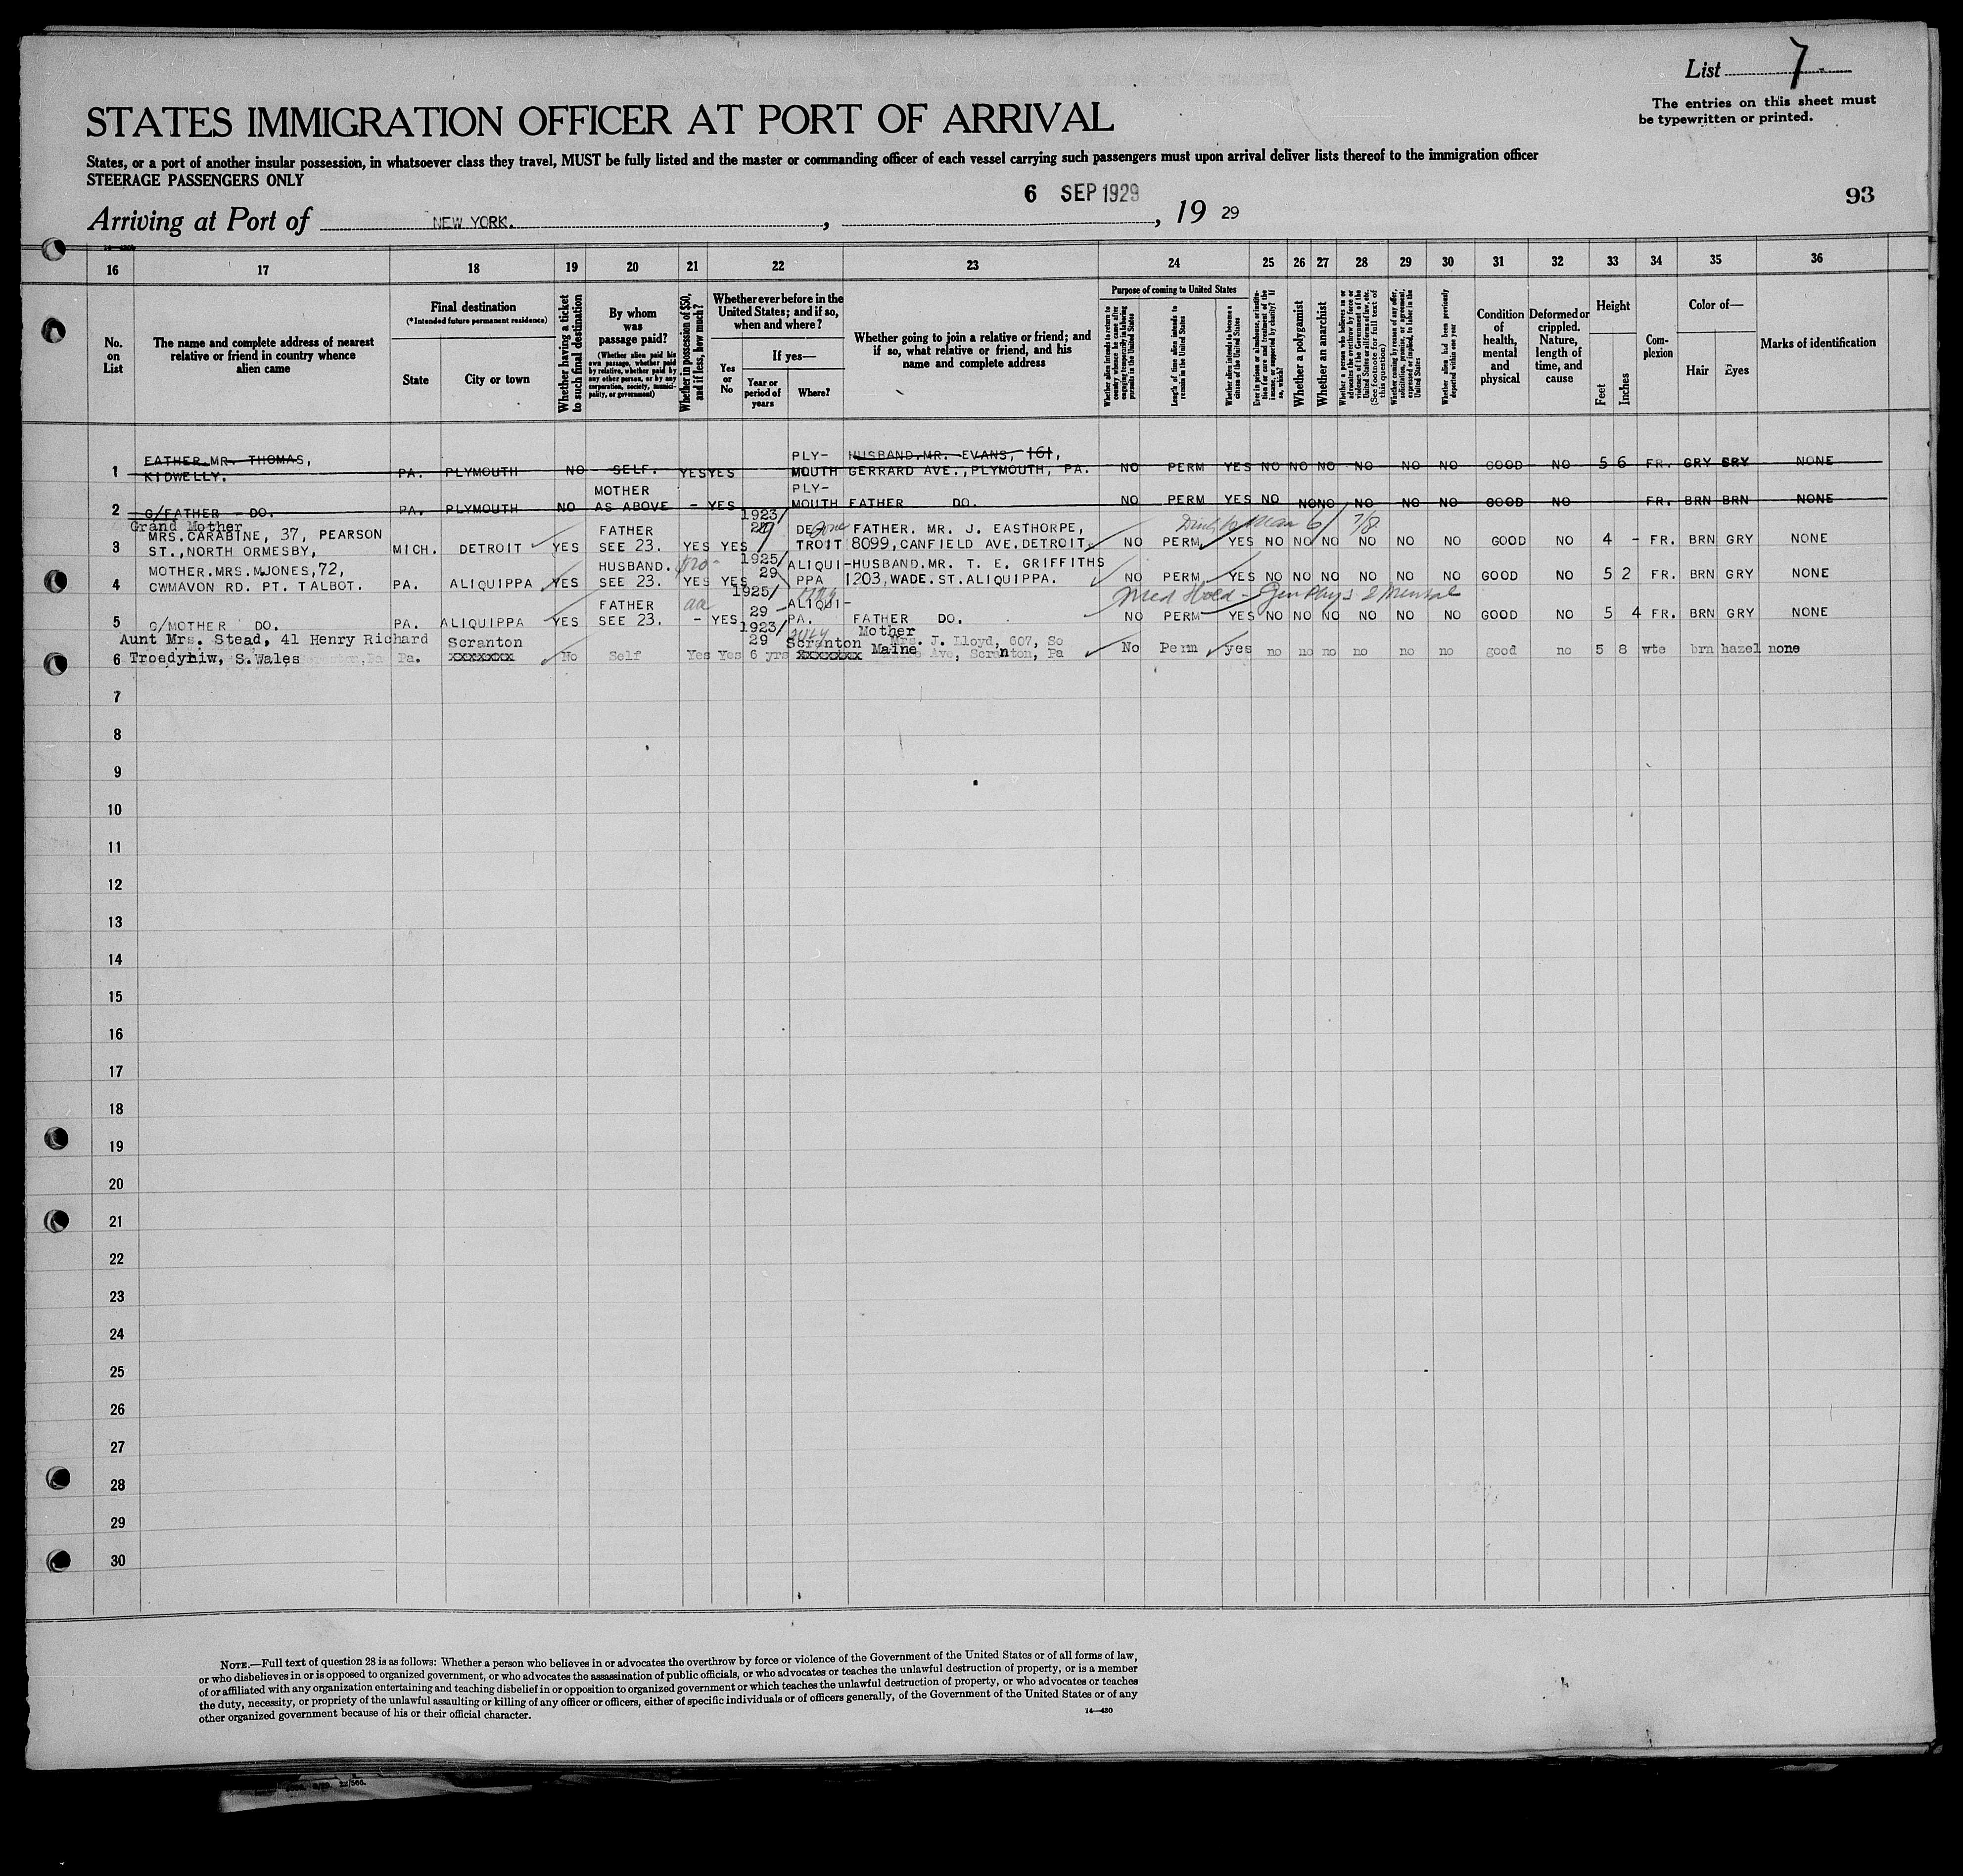 List 7
The entries on this sheet must
be typewritten or printed.
STATES IMMIGRATION OFFICER AT PORT OF ARRIVAL
States, or a port of another insular possession, in whatsoever class they travel, MUST be fully listed and the master or commanding officer of each vessel carrying such passengers must upon arrival deliver lists thereof to the immigration officer
STEERAGE PASSENGERS ONLY
6 SEP 1929
93
Arriving at Port of NEW YORK. , , 19 29
16 17 18 19 20 21 22 23 24 25 26 27 28 29 30 31 32 33 34 35 36
No. on List
The name and complete address of nearest relative or friend in country whence alien came
Final destination
(*Intended future permanent residence)
State
City or town
Whether having a ticket to such final destination
By whom was passage paid?
(Whether alien paid his own passage, whether paid by relative, whether paid by any other person, or by any corporation, society, municipality, or government)
Whether in possession of $50, and if less, how much?
Whether ever before in the United States; and if so, when and where?
Yes or No
If yes—
Year or period of years
Where?
Whether going to join a relative or friend; and if so, what relative or friend, and his name and complete address
Purpose of coming to United States
Whether alien intends to return to country whence he came after engaging temporarily in laboring pursuits in the United States
Length of time alien intends to remain in the United States
Whether alien intends to become a citizen of the United States
Ever in prison or almshouse, or institution for care and treatment of the insane, or supported by charity? If so, which?
Whether a polygamist
Whether an anarchist
Whether a person who believes in or advocates the overthrow by force or violence of the Government of the United States or all forms of law, etc. (See footnote for full text of this question)
Whether coming by reason of any offer, solicitation, promise, or agreement, expressed or implied, to labor in the United States
Whether alien had been previously deported within one year
Condition of health, mental and physical
Deformed or crippled. Nature, length of time, and cause
Height
Feet
Inches
Complexion
Color of—
Hair
Eyes
Marks of identification
FATHER MR. THOMAS, PLY- HUSBAND.MR. EVANS, 161,
1 KIDWELLY. PA. PLYMOUTH NO SELF. YES YES MOUTH GERRARD AVE.,PLYMOUTH, PA. NO PERM YES NO NO NO NO NO NO GOOD NO 5 6 FR. GRY GRY NONE
MOTHER PLY-
2 G/FATHER DO. PA. PLYMOUTH NO AS ABOVE - YES MOUTH FATHER DO. NO PERM YES NO NO NO NO NO NO GOOD NO FR. BRN BRN NONE
Grand Mother 1923/
MRS.CARABINE, 37, PEARSON FATHER DE- FATHER. MR. J. EASTHORPE,
3 ST.,NORTH ORMESBY, MICH. DETROIT YES SEE 23. YES YES TROIT 8099,CANFIELD AVE.DETROIT. NO PERM YES NO NO NO NO NO NO GOOD NO 4 - FR. BRN GRY NONE
MOTHER.MRS.M.JONES,72, HUSBAND. 1925/ ALIQUI- HUSBAND.MR. T. E. GRIFFITHS
4 CWMAVON RD. PT. TALBOT. PA. ALIQUIPPA YES SEE 23. YES YES 29 PPA 1203, WADE.ST.ALIQUIPPA. NO PERM YES NO NO NO NO NO NO GOOD NO 5 2 FR. BRN GRY NONE
Med Hold - Gen Phys & Mental
FATHER 1925/ ALIQUI-
5 G/MOTHER DO. PA. ALIQUIPPA YES SEE 23. - YES 29 PA. FATHER DO. NO PERM YES NO NO NO NO NO NO GOOD NO 5 4 FR. BRN GRY NONE
Aunt Mrs. Stead, 41 Henry Richard Scranton 1923/ 29 Scranton Mother Mrs. J. Lloyd, 607, So
6 Troedyhiw, S.Wales Pa. xxxxxxx No Self Yes Yes 6 yrs xxxxxxx Maine Ave, Scranton, Pa No Perm yes no no no no no no good no 5 8 wte brn hazel none
7
8
9
10
11
12
13
14
15
16
17
18
19
20
21
22
23
24
25
26
27
28
29
30
NOTE.—Full text of question 28 is as follows: Whether a person who believes in or advocates the overthrow by force or violence of the Government of the United States or of all forms of law,
or who disbelieves in or is opposed to organized government, or who advocates the assassination of public officials, or who advocates or teaches the unlawful destruction of property, or is a member
of or affiliated with any organization entertaining and teaching disbelief in or opposition to organized government or which teaches the unlawful destruction of property, or who advocates or teaches
the duty, necessity, or propriety of the unlawful assaulting or killing of any officer or officers, either of specific individuals or of officers generally, of the Government of the United States or of any
other organized government because of his or their official character.
14—430